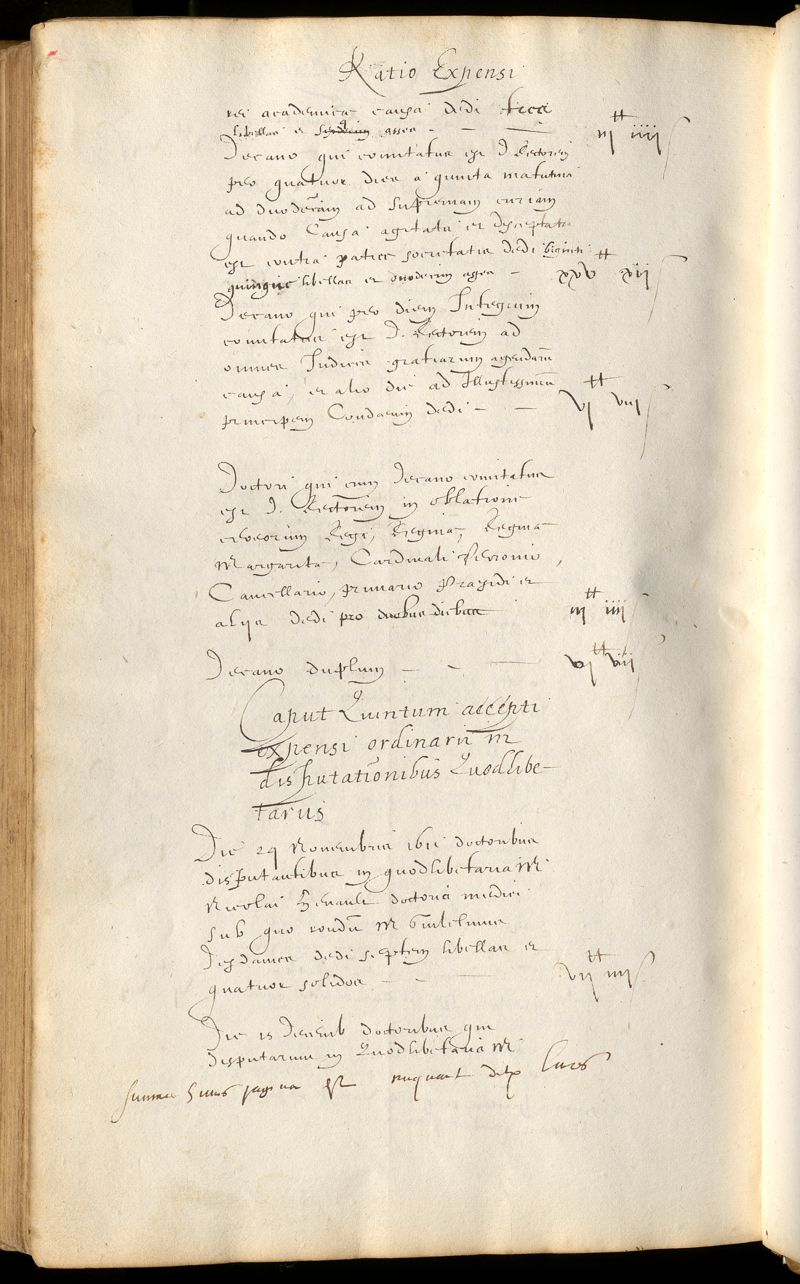 Ratio Expensi
rei academicæ causa dedi tres
libellas et asses — — — iii ᵗᵗ iiii s
Decano qui comitatus est D. Rectorem
pro quatuor dies a quinta matutina
ad duodecām ad supremam curiam
quando Causa agitata et disceptata
est contra patres societatis dedi biginti
quinque libellas et duodecim asses — xxv ᵗᵗ xii s
Decano qui pro diem Integrum
comitatus est D. Rectorem ad
omnes Iudices gratiarum agendarū
causa, et alio die ad Illustrissimum
principem Condæum dedi — — vi ᵗᵗ viii s
Doctori qui cum Decano comitatus
est D. Rectorem in oblatione
cereorum Regi, Reginæ, Reginæ
Margaritæ, Cardinali Perronio,
Cancellario, primario Præsidi et
alijs dedi pro duobus diebus iii ᵗᵗ iiii s
Decano duplum — — — vi ᵗᵗ viii s
Caput Quintum accepti
expensi ordinarii in
disputationibus Quodlibe-
tariis
Die 24 Novembris 1611 doctoribus
disputantibus in quodlibetaria M
Nicolai doctoris medici
sub quo M Guilelmus
dedi septem libellas et
quatuor solidos — — — vii ᵗᵗ iiii s
Die 15 Decemb doctoribus qui
disputarunt in Quodlibetaria M
Summa huius paginæ est